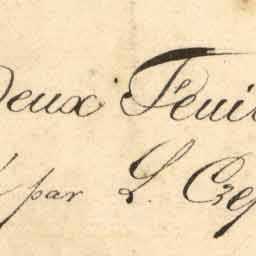 Deux Feuil
par L. Crep